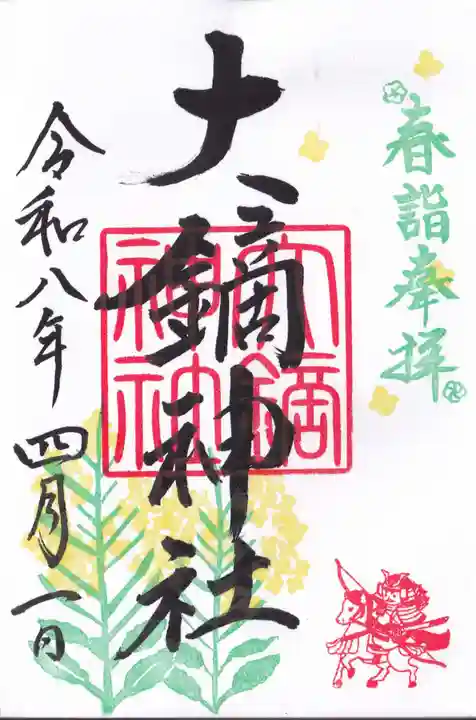 春詣奉拝
大鏑神社
大鏑
神社
令和八年四月一日